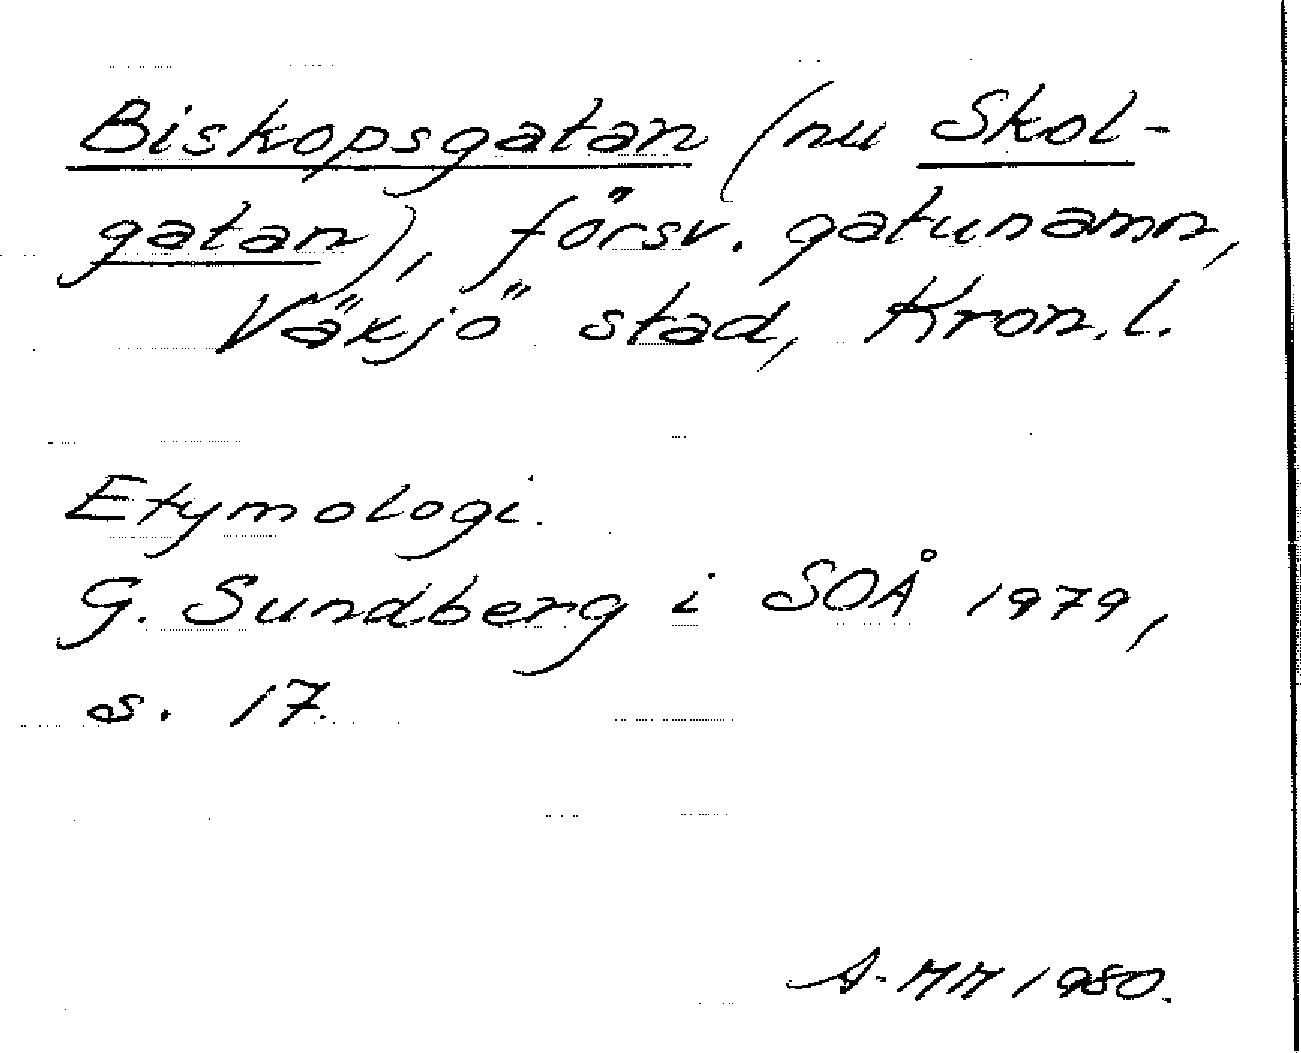 Biskopsgatan (nu Skol-
gatan), försv. gatunamn,
Växjö stad, Kron.l.
Etymologi.
G. Sundberg i SOÅ 1979,
s. 17.
A-MM 1980.